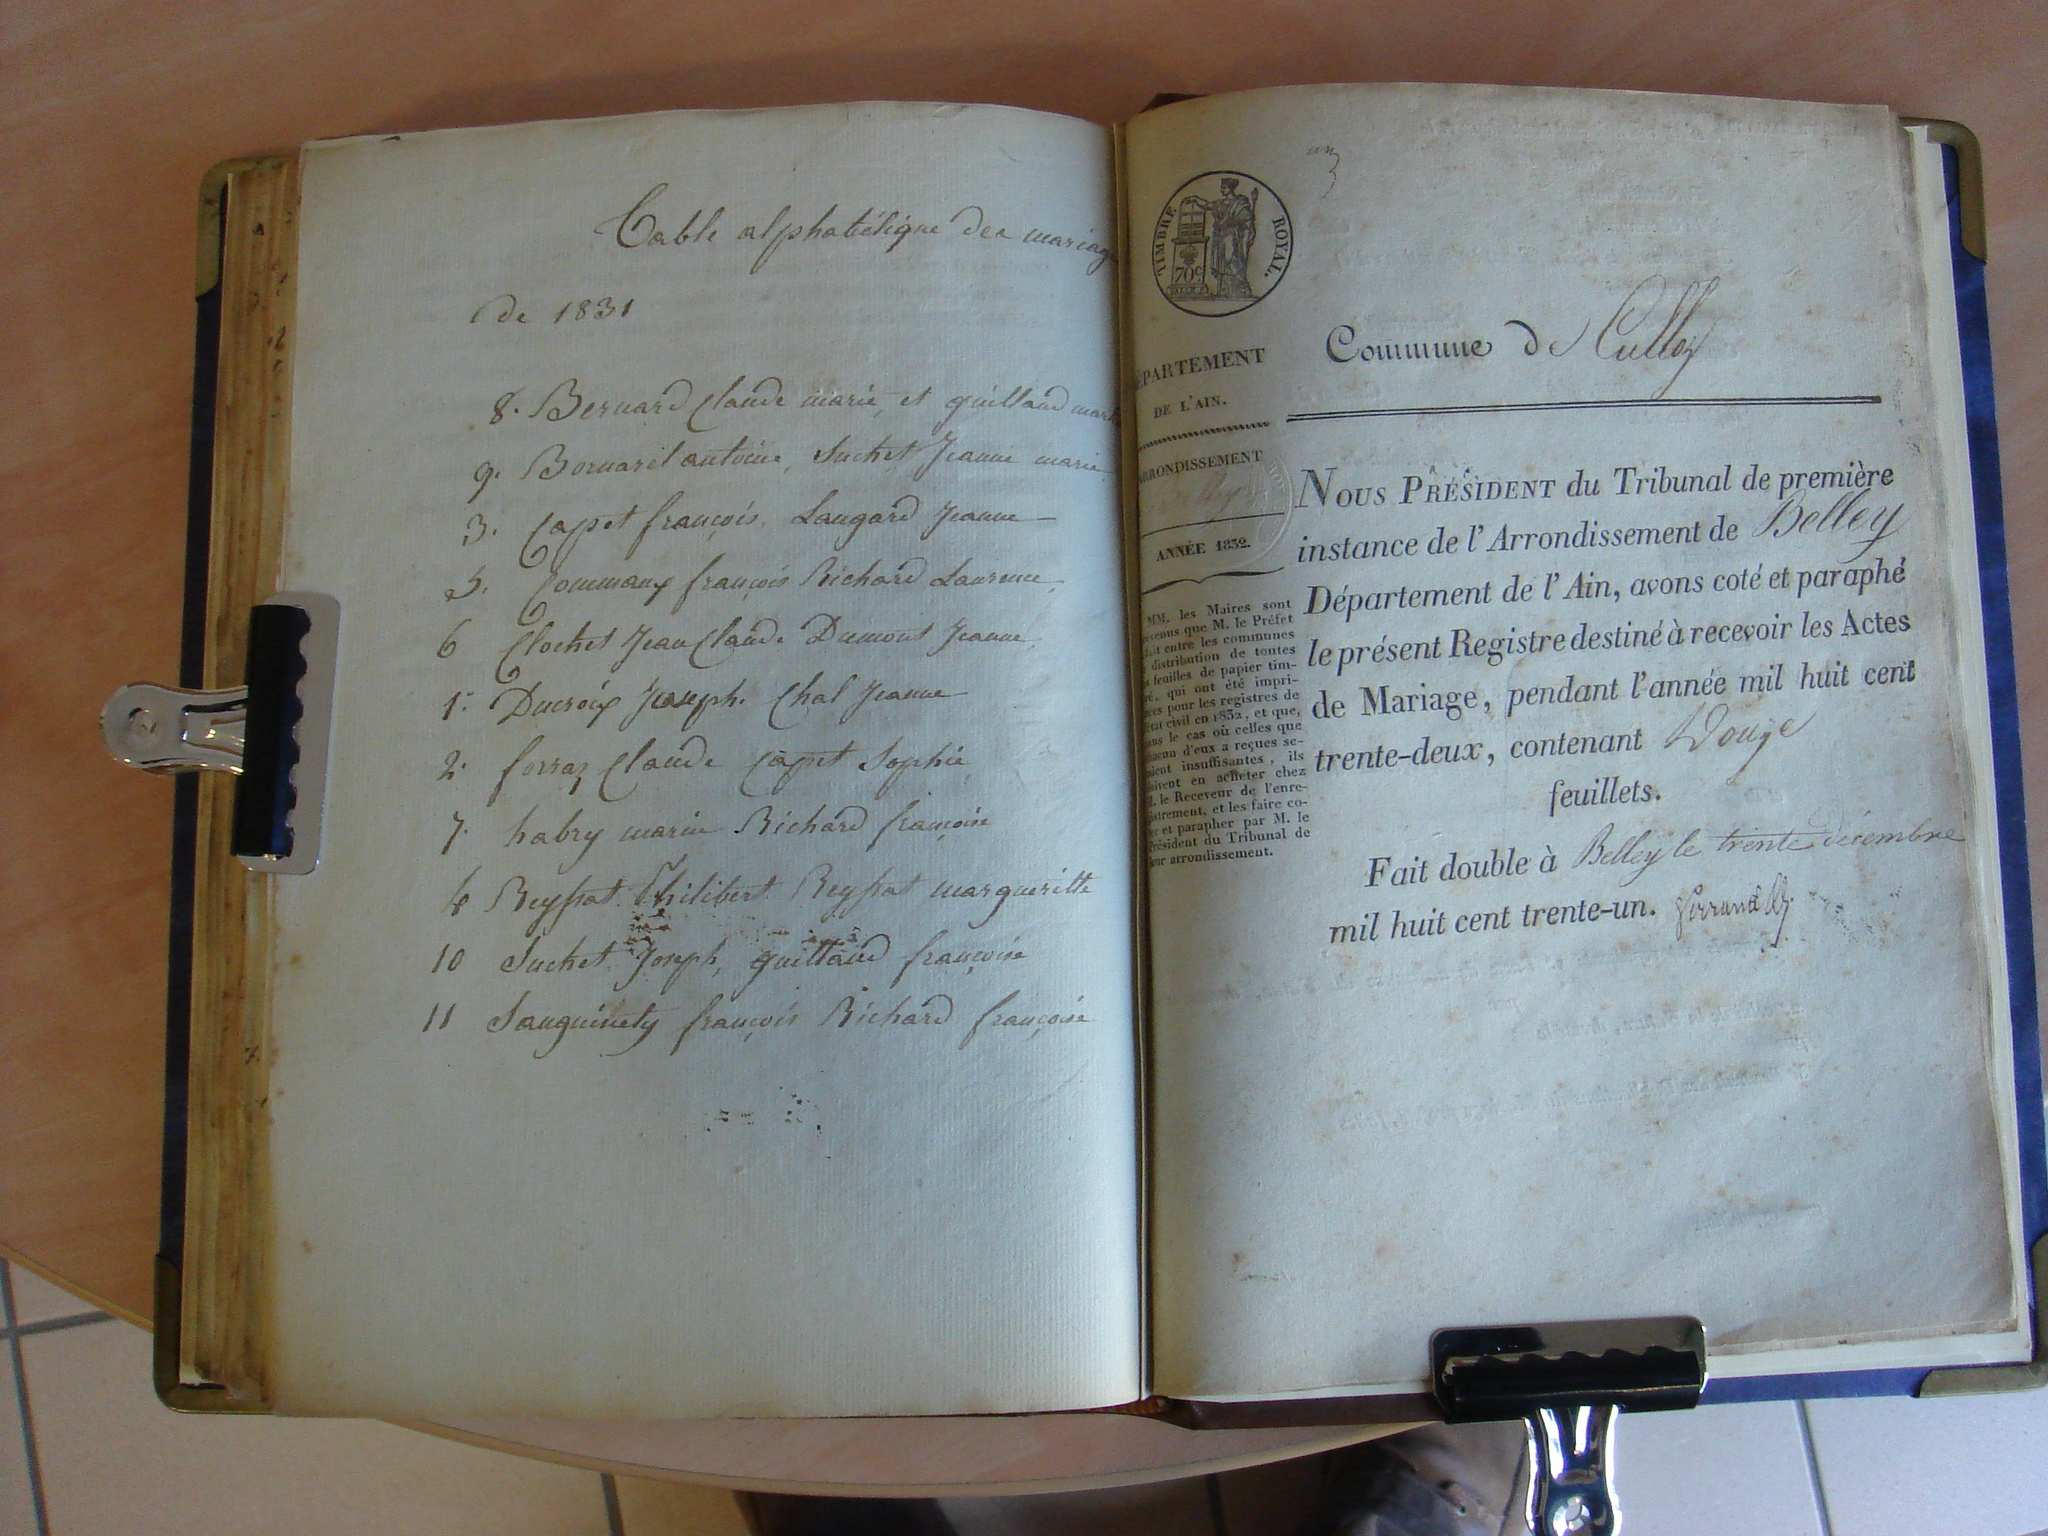 Table alphabétique des mariag
de 1831
8. Bernard Claude marie, et guilland mar
9. Bornarel antoine, Suchet Jeanne marie
3. Capet françois, Laugard Jeanne
5. Commaux françois Richard Laurence
6 Clochet Jean Claude Dumont Jeanne
1. Ducroix Joseph. Chal Jeanne
2. forraz Claude Capet Sophie
7. habry marin Richard françoise
4 Reyssat Philibert Reyssat margueritte
10 Suchet Joseph, guilland françoise
11 Sanguinety françois Richard françoise
un
TIMBRE ROYAL.
70c
EPARTEMENT
DE L'AIN.
RRONDISSEMENT
ANNÉE 1832.
MM. les Maires sont
venus que M. le Préfet
fait entre les communes
distribution de toutes
s feuilles de papier tim-
ré, qui ont été impri-
ées pour les registres de
état civil en 1832, et que,
ans le cas où celles que
hacun d'eux a reçues se-
oient insuffisantes, ils
oivent en acheter chez
. le Receveur de l'enre-
istrement, et les faire co-
er et parapher par M. le
Président du Tribunal de
eur arrondissement.
Commune de Culloz
NOUS PRÉSIDENT du Tribunal de première
instance de l'Arrondissement de Belley
Département de l'Ain, avons coté et paraphé
le présent Registre destiné à recevoir les Actes
de Mariage, pendant l'année mil huit cent
trente-deux, contenant Douze
feuillets.
Fait double à Belley le trente décembre
mil huit cent trente-un.